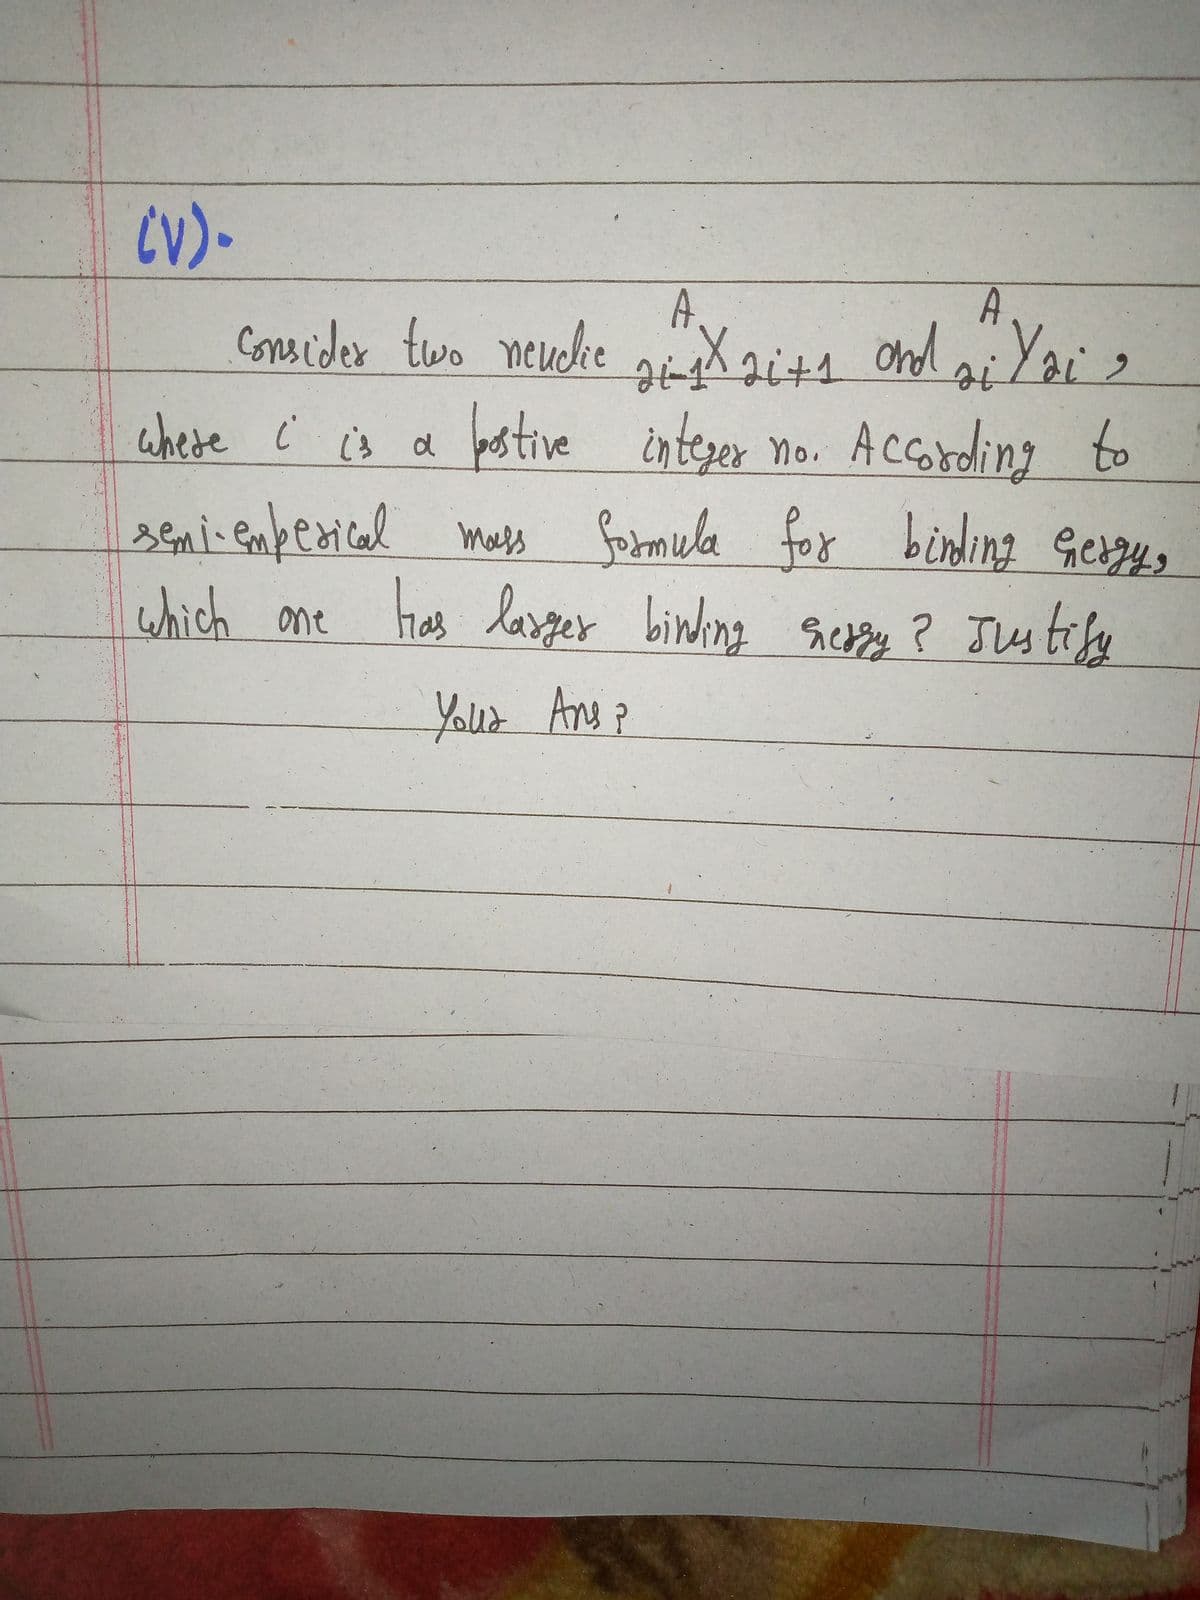 (iV).
Consider two neuclie ᴬ₂ᵢ₋₁X₂ᵢ₊₁ and ᴬ₂ᵢY₂ᵢ,
where i is a postive integer no. According to
semi-emperical mass formula for binding Energy,
which one has larger binding Energy? Justify
Your Ans?